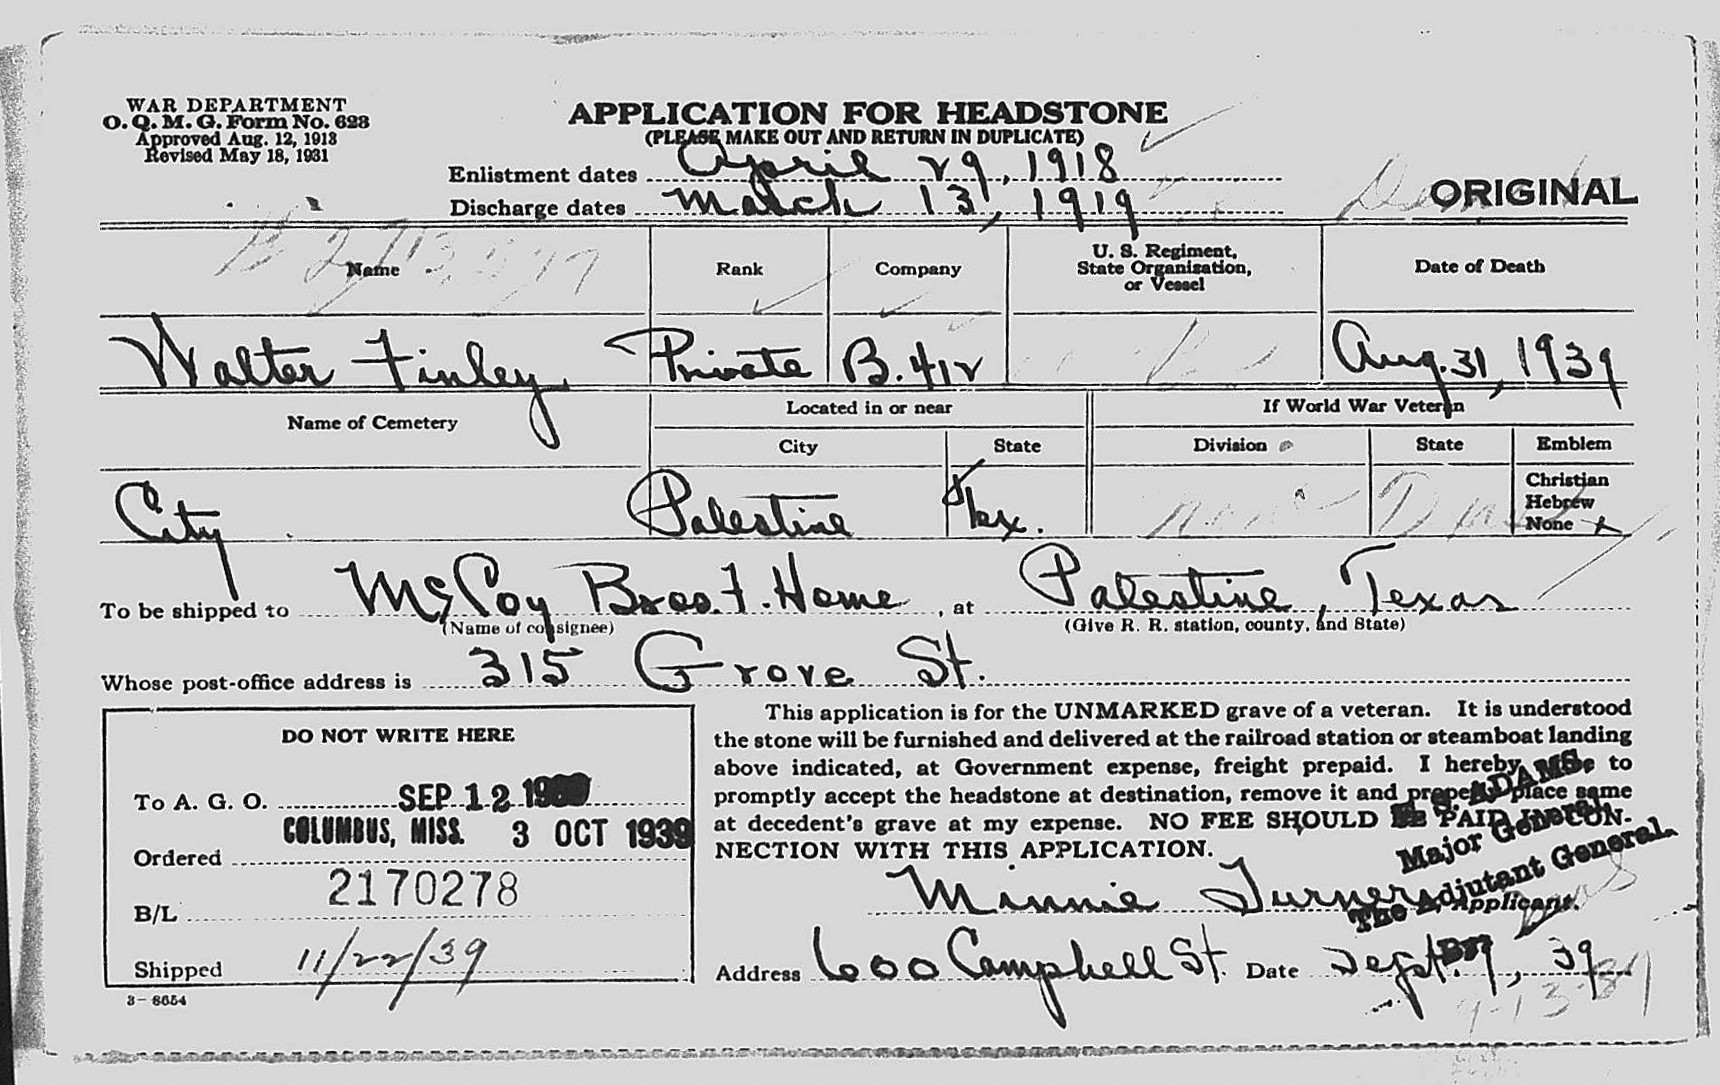 WAR DEPARTMENT
O. Q. M. G. Form No. 623
Approved Aug. 12, 1913
Revised May 18, 1931
APPLICATION FOR HEADSTONE
(PLEASE MAKE OUT AND RETURN IN DUPLICATE)
Enlistment dates April 29, 1918
Discharge dates March 13, 1919
ORIGINAL
Name Rank Company U. S. Regiment, State Organization, or Vessel Date of Death
Walter Finley, Private B. 412 Aug. 31, 1939
Name of Cemetery Located in or near If World War Veteran
City State Division State Emblem
Christian
Hebrew
None x
City Palestine Tex.
To be shipped to McCoy Bros. F. Home, at Palestine, Texas
(Name of consignee) (Give R. R. station, county, and State)
Whose post-office address is 315 Grove St.
DO NOT WRITE HERE
To A. G. O. SEP 12
COLUMBUS, MISS. 3 OCT 1939
Ordered
B/L 2170278
Shipped 11/22/39
3-8654
This application is for the UNMARKED grave of a veteran. It is understood
the stone will be furnished and delivered at the railroad station or steamboat landing
above indicated, at Government expense, freight prepaid. I hereby to
promptly accept the headstone at destination, remove it and properly place same
at decedent's grave at my expense. NO FEE SHOULD BE PAID IN CON-
NECTION WITH THIS APPLICATION.
ADAMS,
Major General,
The Adjutant General.
Minnie Turner, Applicant.
Address 600 Campbell St. Date Sept. 7, 39
9-13-39